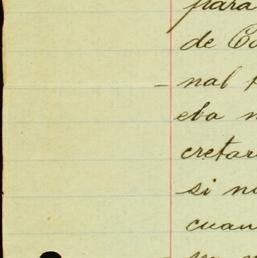 para
de Co
nal
eba n
cretar
si no
cuan